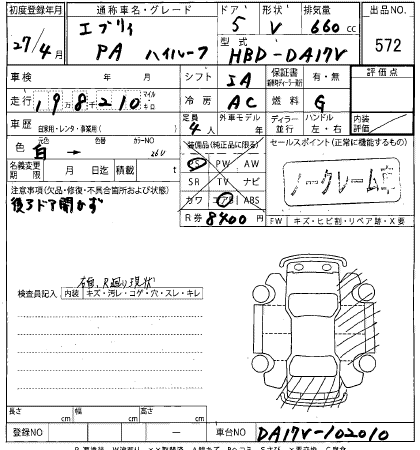 初度登録年月 通称車名・グレード ドア 形状 排気量 出品NO.
27/4月 エブリィ PA ハイルーフ 5 V 660cc 572
型式 HBD-DA17V
車検 年 月 シフト IA 保証書 有・無 評価点
走行 19万8千210 マイルキロ 冷房 AC 燃料 G
車歴 自家用・レンタ・事業用( ) 定員 4人 外車モデル 年 ディーラー 並行 ハンドル 左・右 内装評価
色 白 元色 色替 カラーNO 26U 装備品(純正品に限る) セールスポイント(正常に機能するもの)
名義変更期限 月 日迄 積載 t PS PW AW ノークレーム車
注意事項(欠品・修復・不具合箇所および状態) SR TV ナビ
後ろドア開かず カワ エアB ABS
R券 8400円 FW キズ・ヒビ割・リペア跡・X要
右側、R廻り現状
検査員記入 内装 キズ・汚レ・コゲ・穴・スレ・キレ
長さ cm 幅 cm 高さ cm
登録NO ー 車台NO DA17V-102010